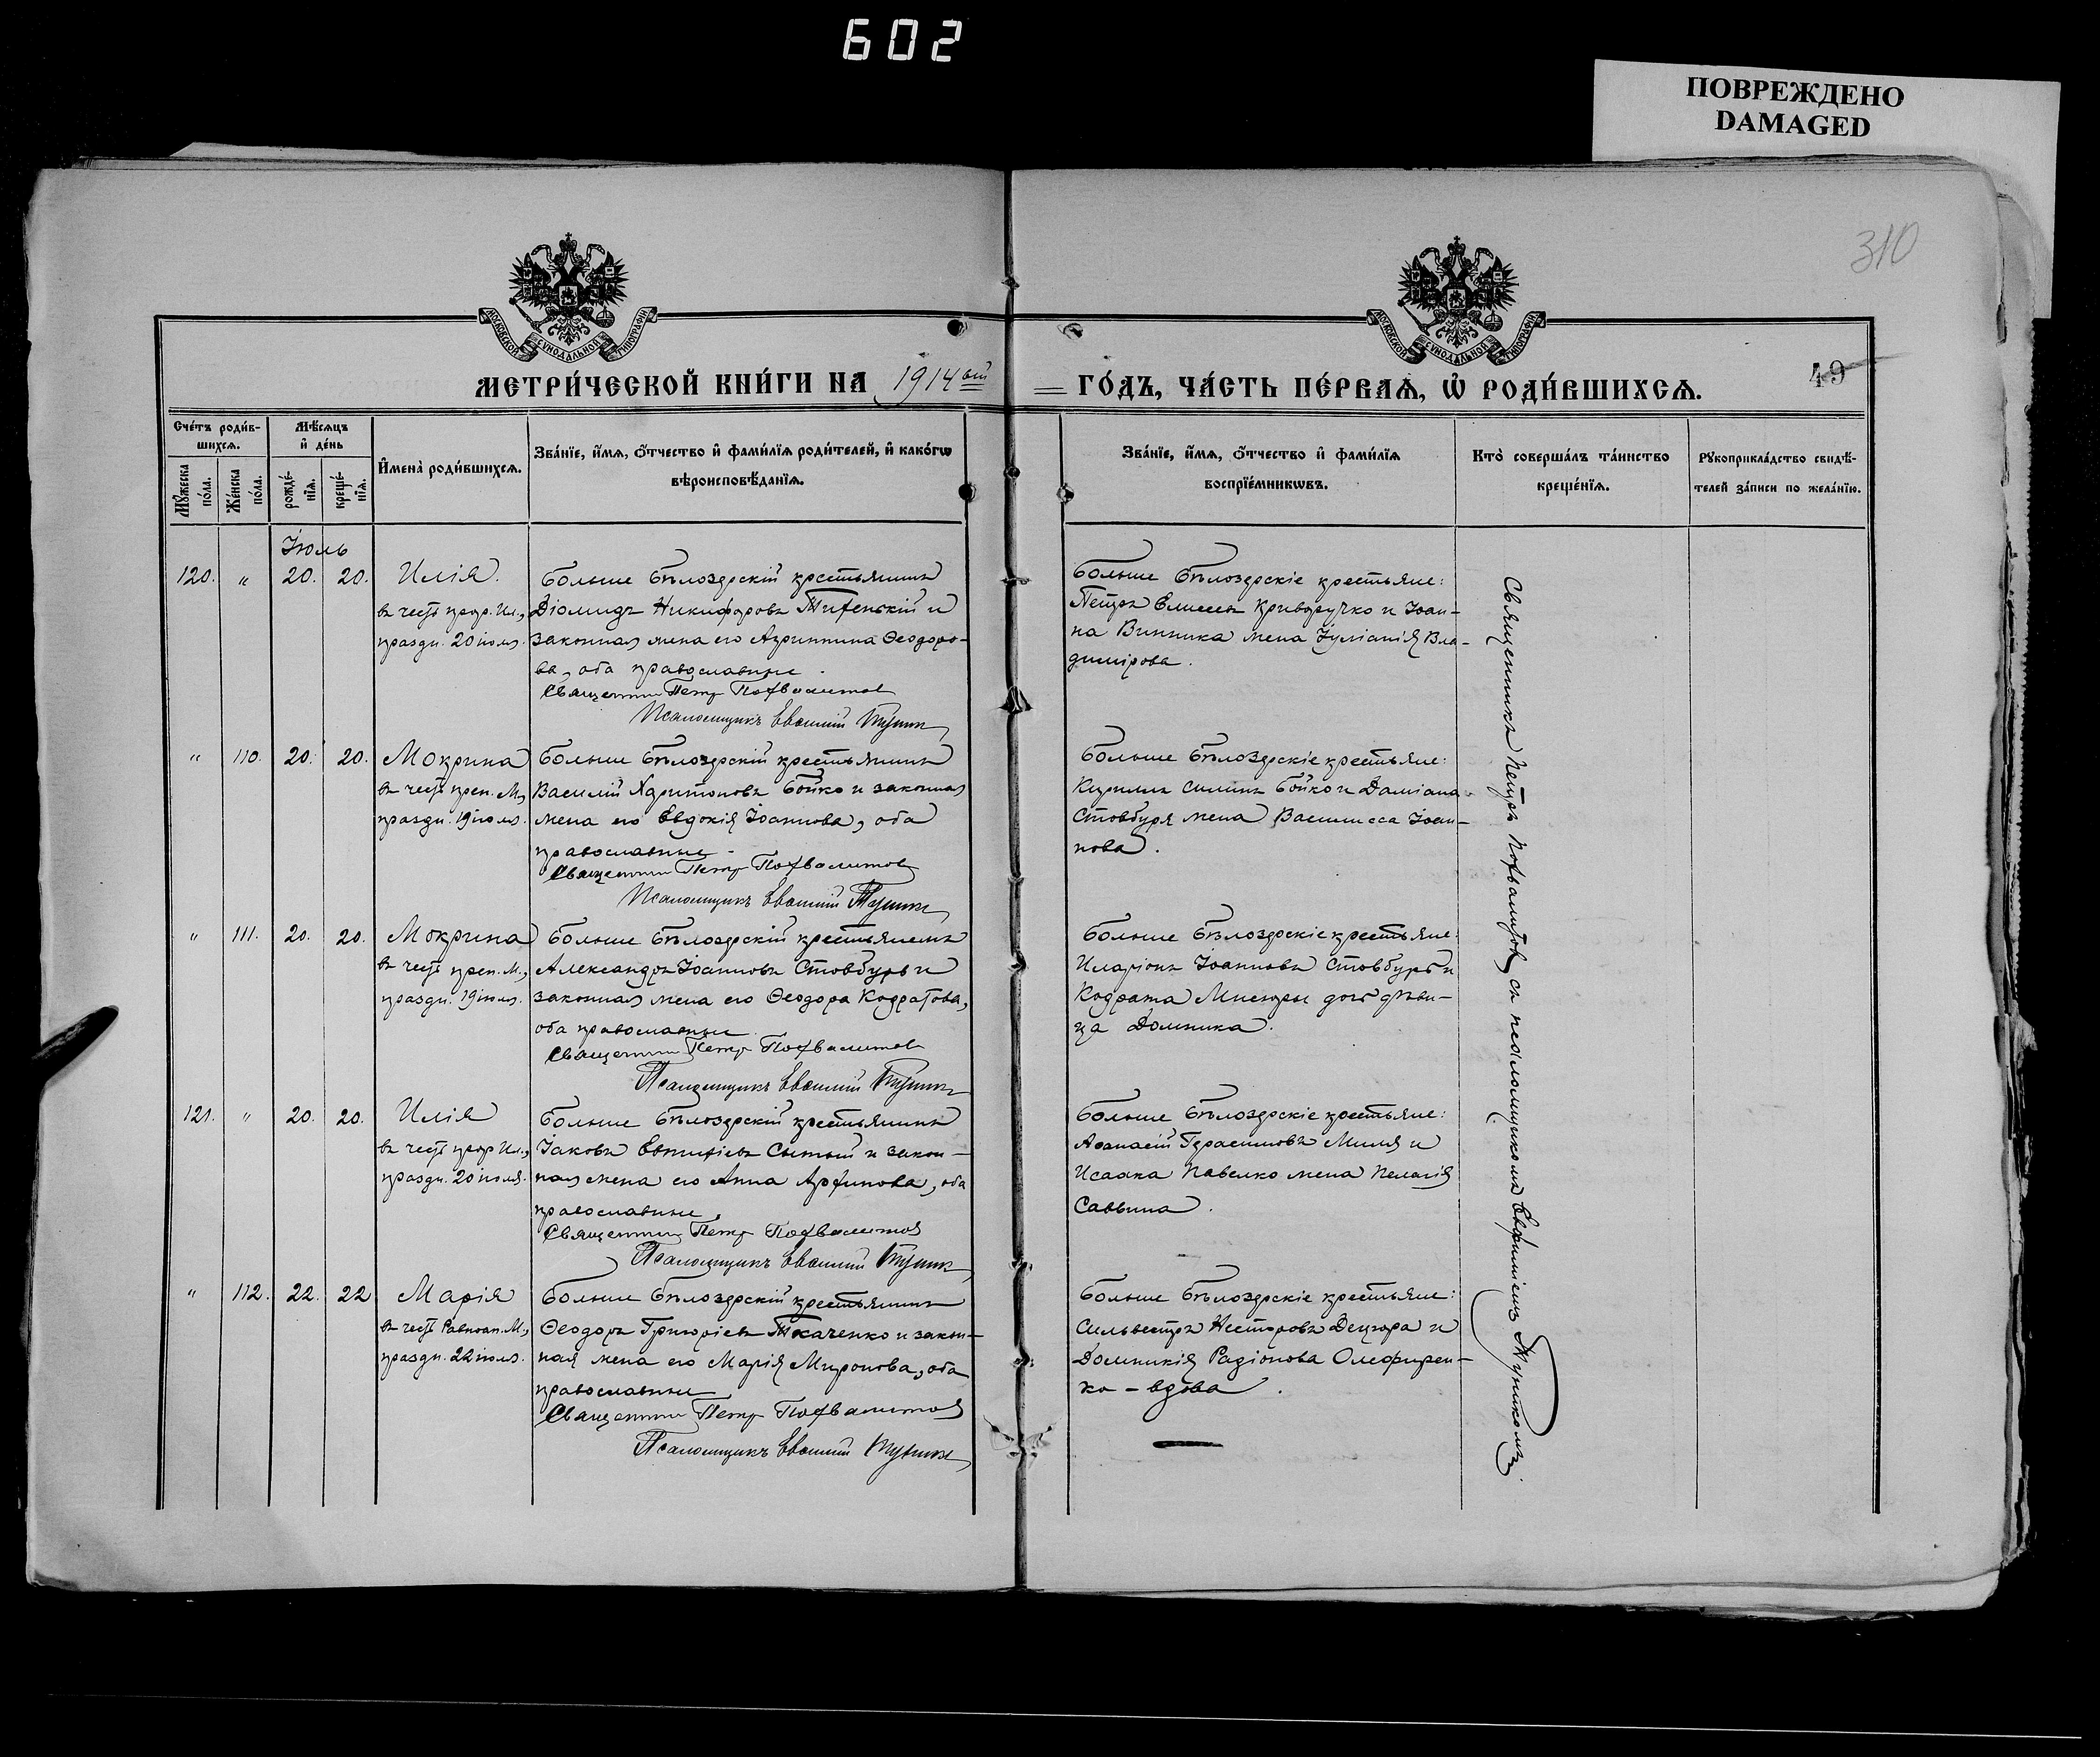 602
ПОВРЕЖДЕНО
DAMAGED
310
49
МОСКОВСКОЙ СУНОДАЛЬНОЙ ТИПОГРАФІИ
МОСКОВСКОЙ СУНОДАЛЬНОЙ ТИПОГРАФІИ
МЕТРИ́ЧЕСКОЙ КНИ́ГИ НА 1914ый
ГО́ДЪ, ЧА́СТЬ ПЕ́РВАѦ, Ѽ РОДИ́ВШИХСѦ.
Сче́тъ роди́в-
шихсѧ.
Мѣ́сѧцъ
и҆ де́нь
Мꙋ́жеска
по́ла.
Же́нска
по́ла.
рожде́-
нїѧ.
креще́-
нїѧ.
И҆мена̀ роди́вшихсѧ.
Зва́нїе, и҆́мѧ, ѻ҆́тчество и҆ фами́лїѧ роди́телей, и҆ како́гѡ
вѣроисповѣ́данїѧ.
Зва́нїе, и҆́мѧ, ѻ҆́тчество и҆ фами́лїѧ
воспрїе́мникѡвъ.
Кто̀ соверша́лъ та́инство
креще́нїѧ.
Рꙋкоприкла́дство свидѣ́-
телей за́писи по жела́нїю.
Іюль
120. " 20. 20. Илія.
въ честь прор. Ил.,
праздн. 20 іюля.
Больше Бѣлозерскій крестьянинъ
Діомидъ Никифоровъ и
законная жена его Агриппина Ѳеодоро-
ва, оба православные.
Священникъ Петръ Похвалитовъ
Псаломщикъ Евѳимій Тупикъ
Больше Бѣлозерскіе крестьяне:
Петръ Елисеевъ Криворучко и Іоан-
на Винника жена Іуліанія Вла-
димірова.
" 110. 20. 20. Мокрина
въ честь преп. М.,
праздн. 19 іюля.
Больше Бѣлозерскій крестьянинъ
Василій Харитоновъ Бойко и законная
жена его Евдокія Іоаннова, оба
православные.
Священникъ Петръ Похвалитовъ
Псаломщикъ Евѳимій Тупикъ
Больше Бѣлозерскіе крестьяне:
Кириллъ Силинъ Бойко и Даміана
Стовбуря жена Василисса Іоан-
нова.
" 111. 20. 20. Мокрина
въ честь преп. М.,
праздн. 19 іюля.
Больше Бѣлозерскій крестьянинъ
Александръ Іоанновъ Стовбуръ и
законная жена его Ѳеодора Кодратова,
оба православные.
Священникъ Петръ Похвалитовъ
Псаломщикъ Евѳимій Тупикъ
Больше Бѣлозерскіе крестьяне:
Иларіонъ Іоанновъ Стовбуръ и
Кодрата Мисюры дочь дѣви-
ца Домника.
121. " 20. 20. Илія
въ честь прор. Ил.,
праздн. 20 іюля.
Больше Бѣлозерскій крестьянинъ
Іаковъ Евтихіевъ Сытый и закон-
ная жена его Анна, оба
православные.
Священникъ Петръ Похвалитовъ
Псаломщикъ Евѳимій Тупикъ
Больше Бѣлозерскіе крестьяне:
Аѳанасій Герасимовъ и
Исаака Павелко жена Пелагія
Саввина.
" 112. 22. 22 Марія
въ честь Равноап. М.,
праздн. 22 іюля.
Больше Бѣлозерскій крестьянинъ
Ѳеодоръ Григоріевъ Ткаченко и закон-
ная жена его Марія Миронова, оба
православные
Священникъ Петръ Похвалитовъ
Псаломщикъ Евѳимій Тупикъ
Больше Бѣлозерскіе крестьяне:
Сильвестръ Несторовъ Децюра и
Домникія Радіонова Олефирен-
ко - вдова.
Священникъ Петръ Похвалитовъ съ псаломщикомъ Евфиміемъ Тупикомъ.